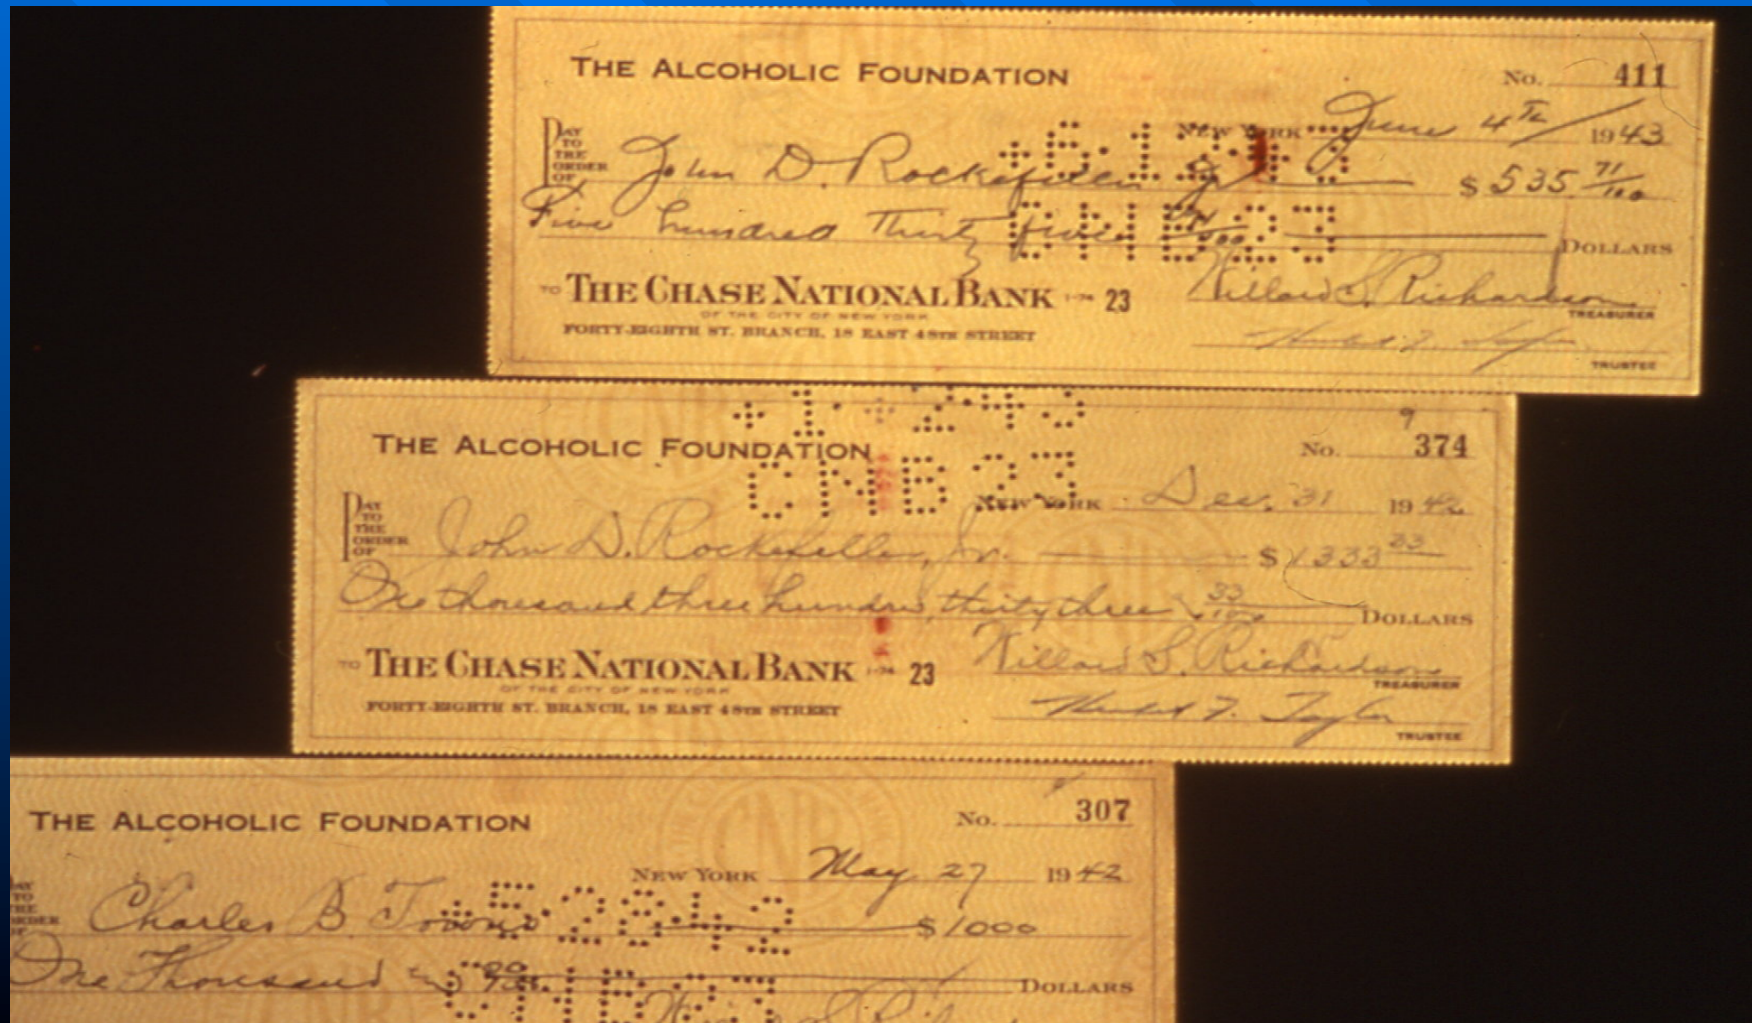 THE ALCOHOLIC FOUNDATION
No. 411
NEW YORK June 4th 1943
PAY TO THE ORDER OF John D. Rockefeller Jr $535 71/100
Five hundred Thirty five 71/100 DOLLARS
+6·12·43
CNB 23
TO THE CHASE NATIONAL BANK 1-74 23
OF THE CITY OF NEW YORK
FORTY-EIGHTH ST. BRANCH, 18 EAST 48TH STREET
Willard S. Richardson
TREASURER
Herbert F. Taylor
TRUSTEE
+1·243
CNB 23
9
THE ALCOHOLIC FOUNDATION
No. 374
NEW YORK Dec. 31 1942
PAY TO THE ORDER OF John D. Rockefeller, Jr. $1333 33
One thousand three hundred, thirty three 33/100 DOLLARS
TO THE CHASE NATIONAL BANK 1-74 23
OF THE CITY OF NEW YORK
FORTY-EIGHTH ST. BRANCH, 18 EAST 48TH STREET
Willard S. Richardson
TREASURER
Herbert F. Taylor
TRUSTEE
THE ALCOHOLIC FOUNDATION
No. 307
NEW YORK May 27 1942
Charles B. Towns $1000
+5·28·42
One Thousand DOLLARS